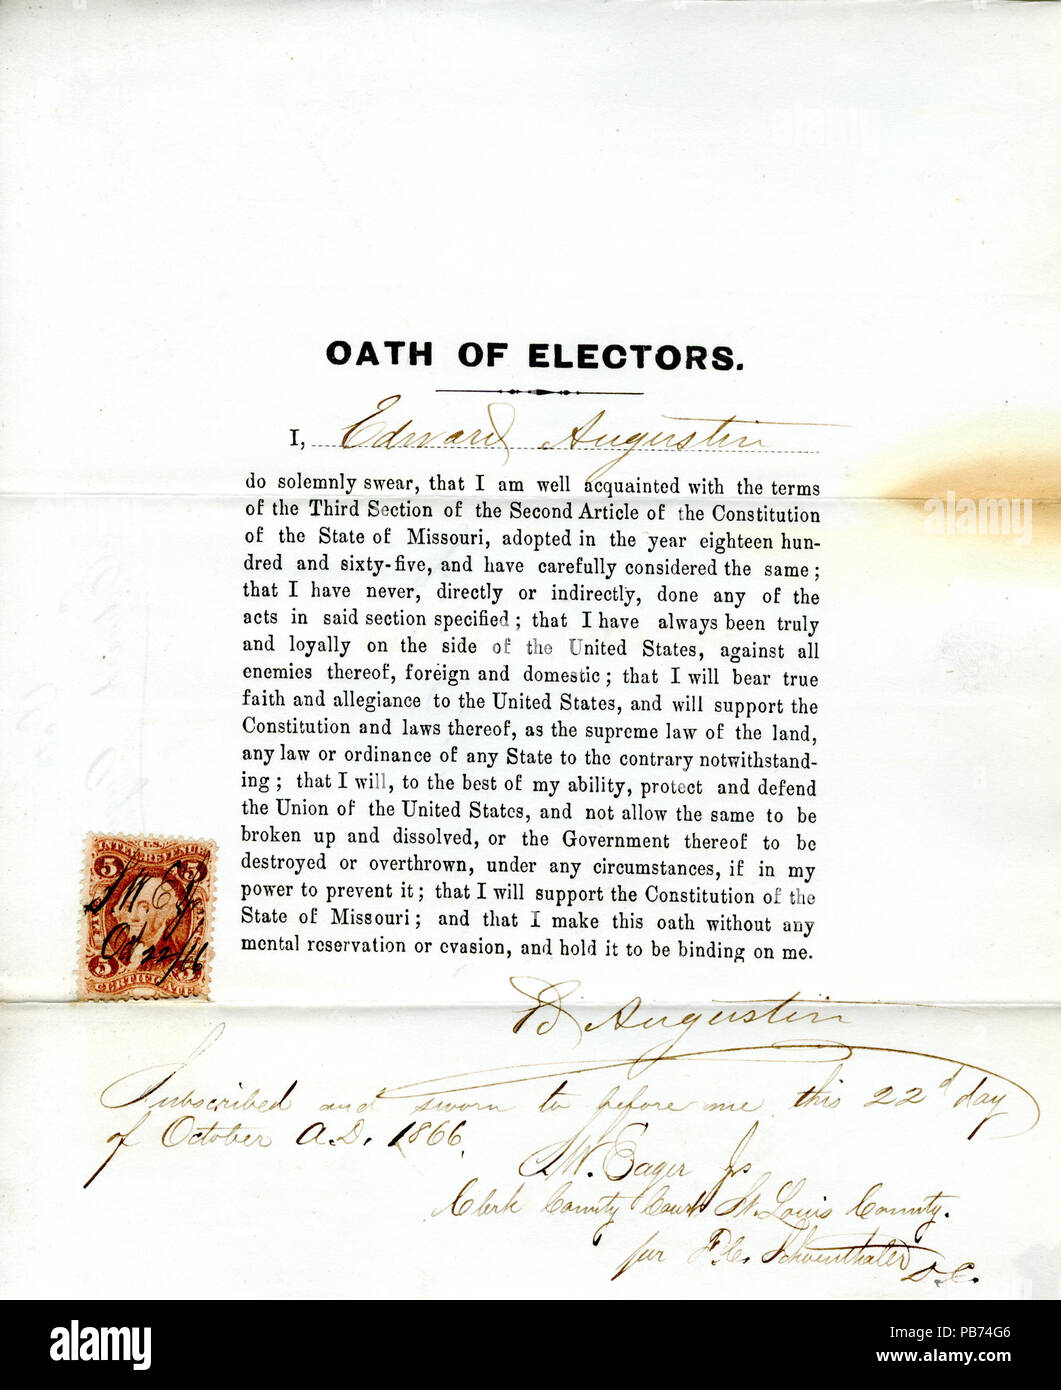 OATH OF ELECTORS.
I, Edward Augustin
do solemnly swear, that I am well acquainted with the terms
of the Third Section of the Second Article of the Constitution
of the State of Missouri, adopted in the year eighteen hun-
dred and sixty-five, and have carefully considered the same;
that I have never, directly or indirectly, done any of the
acts in said section specified; that I have always been truly
and loyally on the side of the United States, against all
enemies thereof, foreign and domestic; that I will bear true
faith and allegiance to the United States, and will support the
Constitution and laws thereof, as the supreme law of the land,
any law or ordinance of any State to the contrary notwithstand-
ing; that I will, to the best of my ability, protect and defend
the Union of the United States, and not allow the same to be
broken up and dissolved, or the Government thereof to be
destroyed or overthrown, under any circumstances, if in my
power to prevent it; that I will support the Constitution of the
State of Missouri; and that I make this oath without any
mental reservation or evasion, and hold it to be binding on me.
U.S.
INTER. REVENUE
5 5
S W E Jr
Oct 22/66
5 5
CERTIFICATE
Ed Augustin
Subscribed and sworn to before me this 22d day
of October A.D. 1866.
S.W. Eager Jr
Clerk County Court St. Louis County.
per F.C. Schoenthaler D.C.
alamy
alamy
alamy
Image ID: PB74G6
www.alamy.com